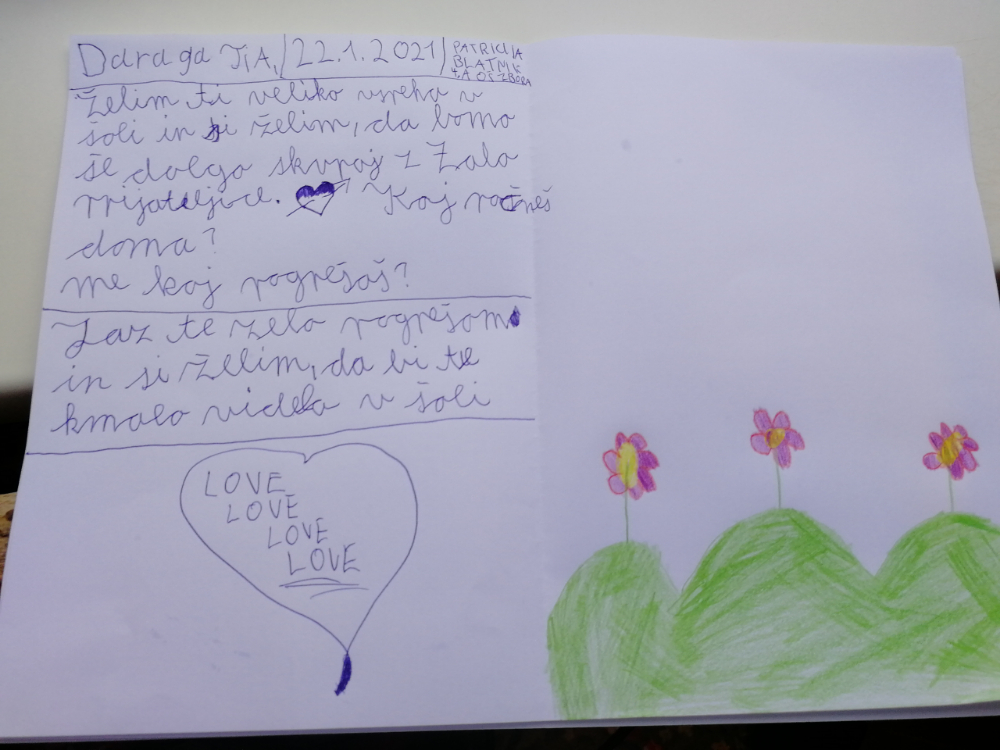 Daraga TIA, 22.1.2021 PATRICIJA
BLATNIK
4.A OŠ ZBORA
Želim ti veliko uspeha v
šoli in si želim, da bomo
še dolgo skupaj z Zalo
prijateljice. Kaj počneš
doma?
me kaj pogrešaš?
Jaz te zelo pogrešam
in si želim, da bi te
kmalo videla v šoli
LOVE
LOVE
LOVE
LOVE